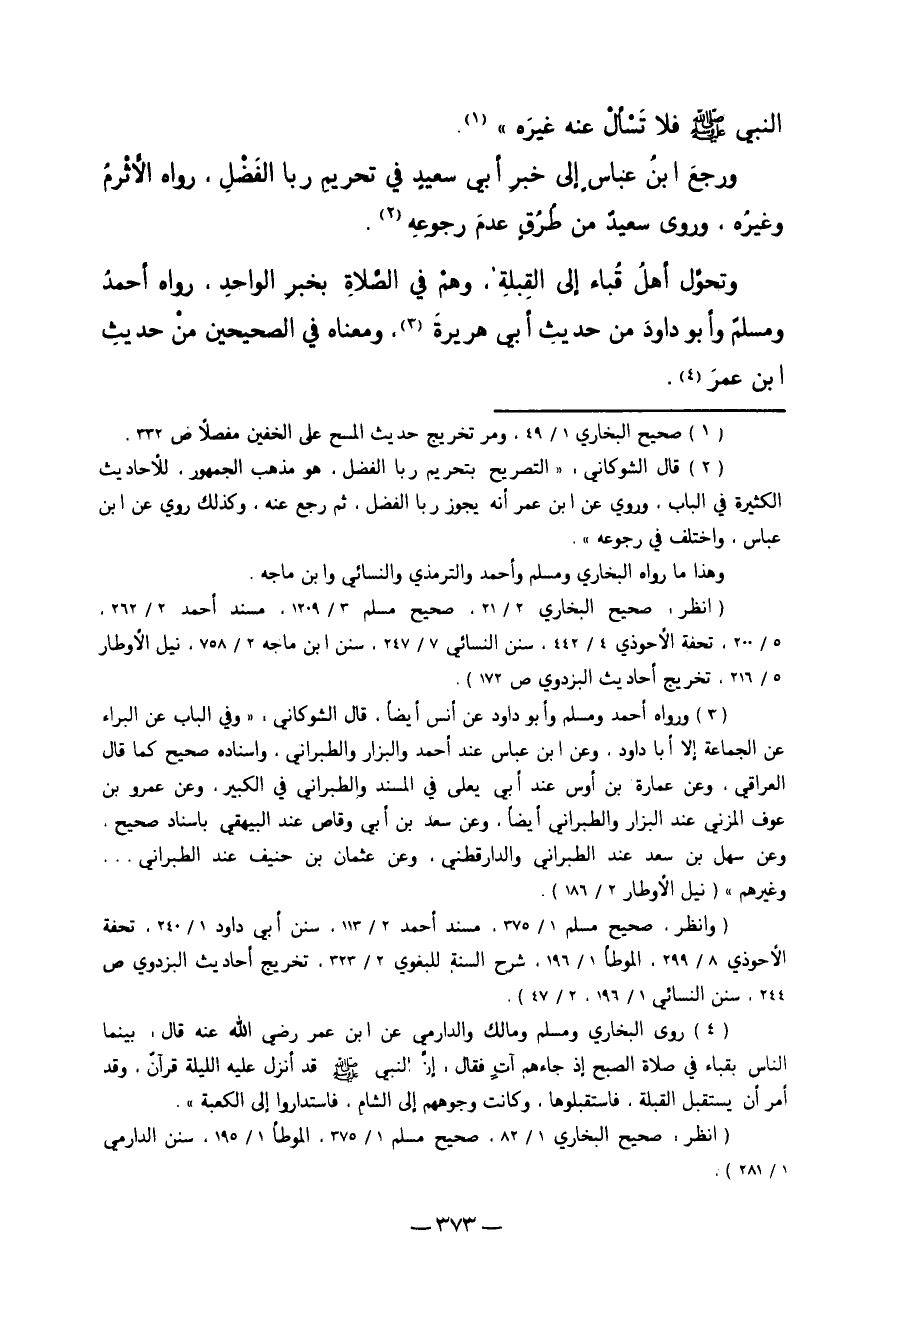 النبي ﷺ فلا تَسْألْ عنه غيرَه » (١) .
ورجعَ ابنُ عباسٍ إلى خبرِ أبي سعيدٍ في تحريمِ ربا الفَضْلِ ، رواه الأثرمُ
وغيرُه ، وروى سعيدٌ من طُرُقٍ عدمَ رجوعِهِ (٢) .
وتحوَّل أهلُ قُباء إلى القِبلةِ ، وهمْ في الصَّلاةِ بخبرِ الواحدِ ، رواه أحمدُ
ومسلمٌ وأبو داودَ من حديثِ أبي هريرةَ (٣) ، ومعناه في الصحيحين منْ حديثِ
ابن عمرَ (٤) .
( ١ ) صحيح البخاري ١ / ٤٩ ، ومر تخريج حديث المسح على الخفين مفصلاً ص ٣٣٢ .
( ٢ ) قال الشوكاني : « التصريح بتحريم ربا الفضل ، هو مذهب الجمهور ، للأحاديث
الكثيرة في الباب ، وروي عن ابن عمر أنه يجوز ربا الفضل ، ثم رجع عنه ، وكذلك روي عن ابن
عباس ، واختلف في رجوعه » .
وهذا ما رواه البخاري ومسلم وأحمد والترمذي والنسائي وابن ماجه .
( انظر : صحيح البخاري ٢ / ٢١ ، صحيح مسلم ٣ / ١٢٠٩ ، مسند أحمد ٢ / ٢٦٢ ،
٥ / ٢٠٠ ، تحفة الأحوذي ٤ / ٤٤٢ ، سنن النسائي ٧ / ٢٤٧ ، سنن ابن ماجه ٢ / ٧٥٨ ، نيل الأوطار
٥ / ٢١٦ ، تخريج أحاديث البزدوي ص ١٧٢ ) .
( ٣ ) ورواه أحمد ومسلم وأبو داود عن أنس أيضاً ، قال الشوكاني : « وفي الباب عن البراء
عن الجماعة إلا أبا داود ، وعن ابن عباس عند أحمد والبزار والطبراني ، واسناده صحيح كما قال
العراقي ، وعن عمارة بن أوس عند أبي يعلى في المسند والطبراني في الكبير ، وعن عمرو بن
عوف المزني عند البزار والطبراني أيضاً ، وعن سعد بن أبي وقاص عند البيهقي باسناد صحيح ،
وعن سهل بن سعد عند الطبراني والدارقطني ، وعن عثمان بن حنيف عند الطبراني ...
وغيرهم » ( نيل الأوطار ٢ / ١٨٦ ) .
( وانظر ، صحيح مسلم ١ / ٣٧٥ ، مسند أحمد ٢ / ١١٣ ، سنن أبي داود ١ / ٢٤٠ ، تحفة
الأحوذي ٨ / ٢٩٩ ، الموطأ ١ / ١٩٦ ، شرح السنة للبغوي ٢ / ٣٢٣ ، تخريج أحاديث البزدوي ص
٢٤٤ ، سنن النسائي ١ / ١٩٦ ، ٢ / ٤٧ ) .
( ٤ ) روى البخاري ومسلم ومالك والدارمي عن ابن عمر رضي الله عنه قال : بينما
الناس بقباء في صلاة الصبح إذ جاءهم آتٍ فقال : إنَّ النبي ﷺ قد أنزل عليه الليلة قرآنٌ ، وقد
أمر أن يستقبل القبلة ، فاستقبلوها ، وكانت وجوههم إلى الشام ، فاستداروا إلى الكعبة » .
( انظر : صحيح البخاري ١ / ٨٢ ، صحيح مسلم ١ / ٣٧٥ ، الموطأ ١ / ١٩٥ ، سنن الدارمي
١ / ٢٨١ ) .
— ٣٧٣ —